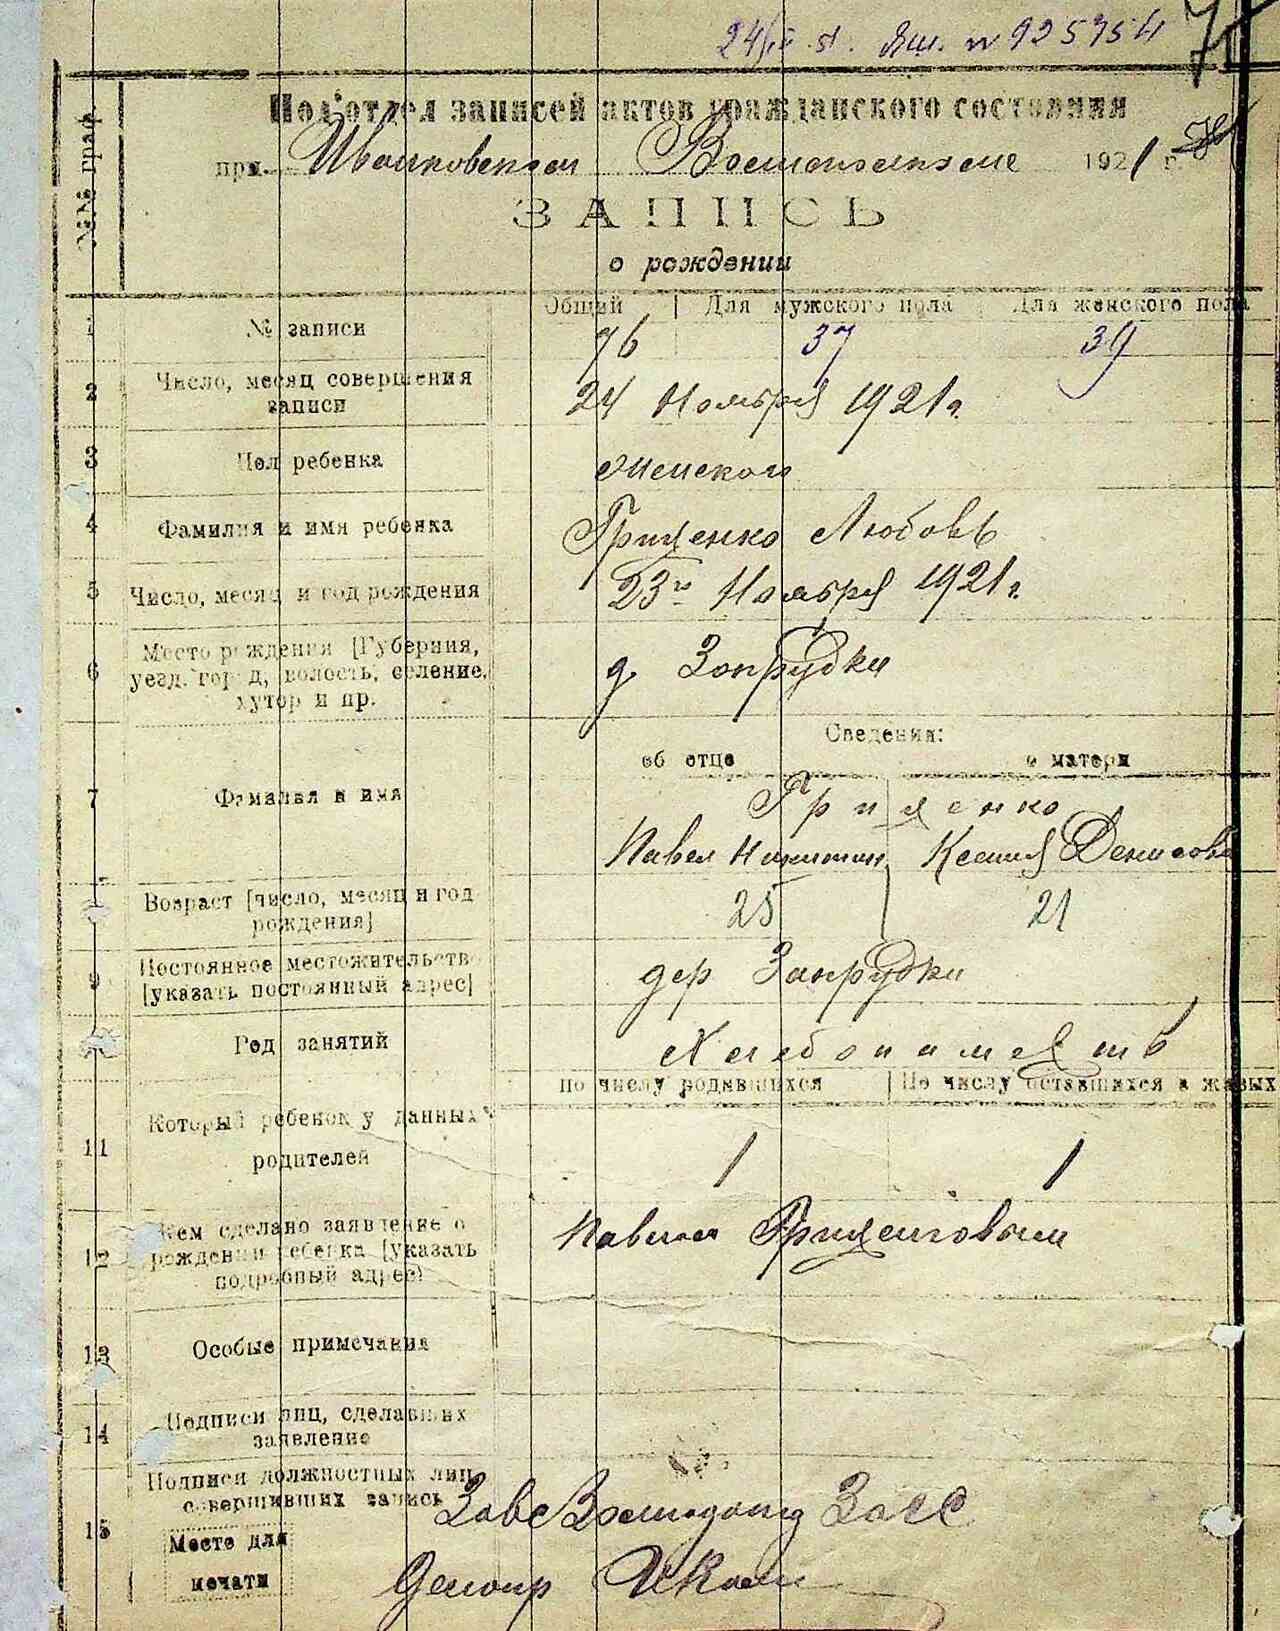 № 925754
Подотдел записей актов гражданского состояния
при 1921 г.
№№ граф.
ЗАПИСЬ
о рождении
Общий Для мужского пола Для женского пола
1 № записи 76 37 39
2 Число, месяц совершения
записи 24 Ноября 1921 г.
3 Пол ребенка женского
4 Фамилия и имя ребенка Гриценко Любовь
5 Число, месяц и год рождения 23го Ноября 1921 г.
6 Место рождения [Губерния,
уезд, город, волость, селение,
хутор и пр. д. Запрудки
Сведения:
об отце о матери
7 Фамилья и имя Гриценко
Павел Никитин Ксения Денисова
Возраст [число, месяц и год
рождения] 25 21
9 Постоянное местожительство
[указать постоянный адрес] дер Запрудки
Род занятий Хлебопашество
По числу родившихся По числу оставшихся в живых
11 Который ребенок у данных
родителей 1 1
12 Кем сделано заявление о
рождении ребенка [указать
подробный адрес) Павлом Гриценковым
13 Особые примечания
14 Подписи лиц, сделавших
заявление
15 Подписи должностных лиц,
совершивших запись
Место для
печати